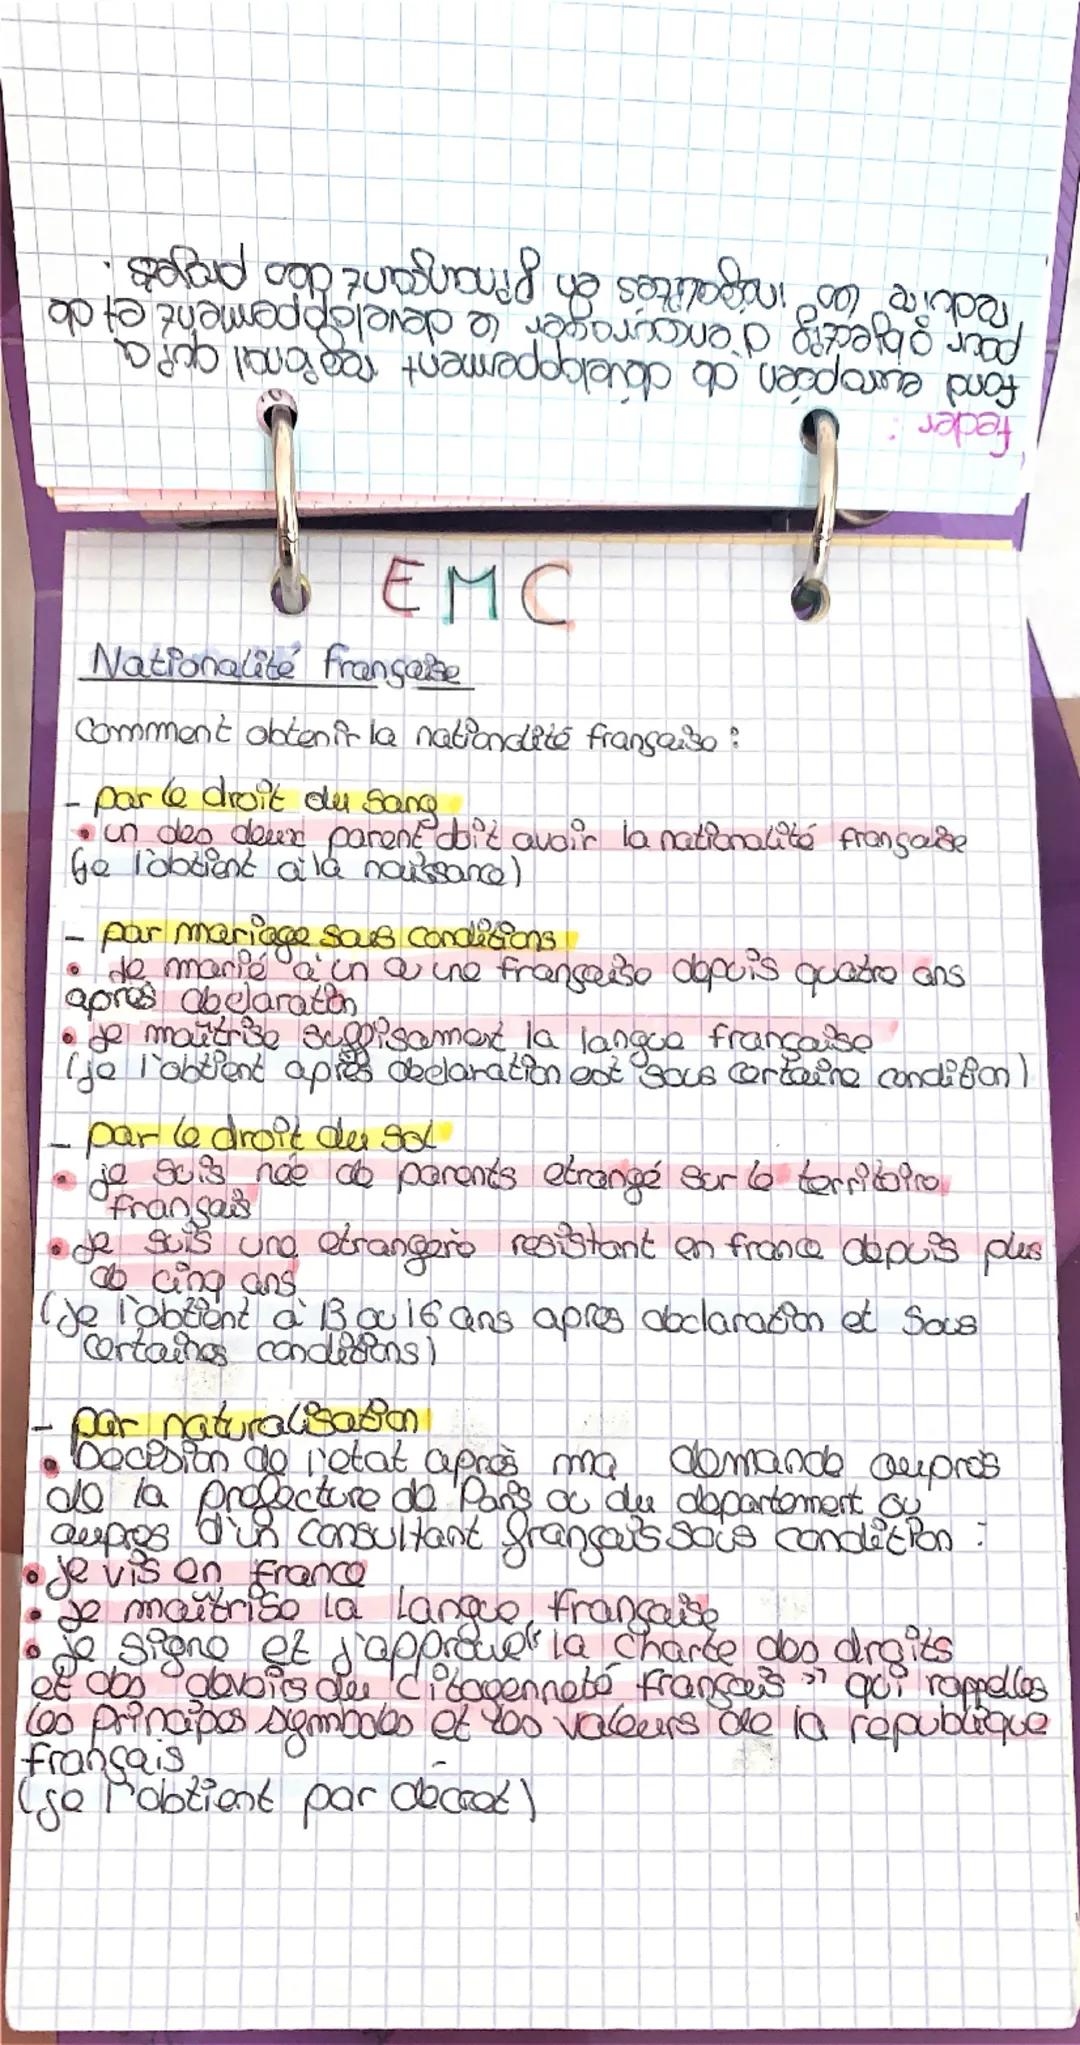 feder :
fond européen de développement régional qui a
pour objectif d'encourager le developpement et de
reduire les inégalités en finançant des projets.
EMC
Nationalité française
Comment obtenir la nationalité française :
- par le droit du sang
• un des deux parent doit avoir la nationalité française
(je l'obtient à la naissance)
- par mariage sous conditions
• Je marié à un a une française depuis quatre ans
apres declaration
• je maîtrise suffisament la langue française
(je l'obtient après declaration est sous certaine condition)
- par le droit du sol
• je suis née de parents etrangé sur le territoire
français
• Je suis une etrangère resistant en france depuis plus
de cinq ans
(Je l'obtient à 13 ou 16 ans apres declaration et sous
certaines conditions)
- par naturalisation
• Decision de l'etat après ma demande aupres
de la prefecture de Paris ou du departement ou
aupres d'un consultant français sous condition :
• je vis en France
• Je maîtrise la langue française
• Je signe et j'approuve "la charte des droits
et des devoirs du citoyenneté français" qui rappelles
les principes symboles et les valeurs de la republique
français
(je l'obtient par decret)